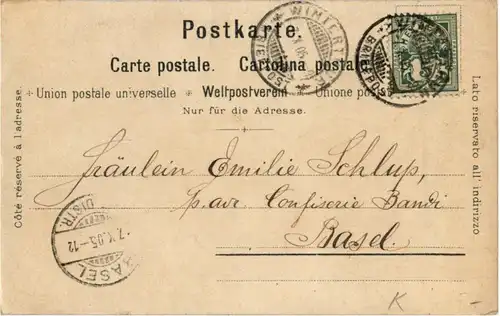 Postkarte.
Carte postale. Cartolina postale
Union postale universelle Weltpostverein Unione pos
Nur für die Adresse.
Côté réservé à l'adresse.
Lato riservato all' indirizzo
WINTERT
WINTERTHUR
BRIEF
Fräulein Emilie Schlup,
p. adr. Confiserie Bandi
Basel.
DISTR.
7.X.05-12
BASEL
K